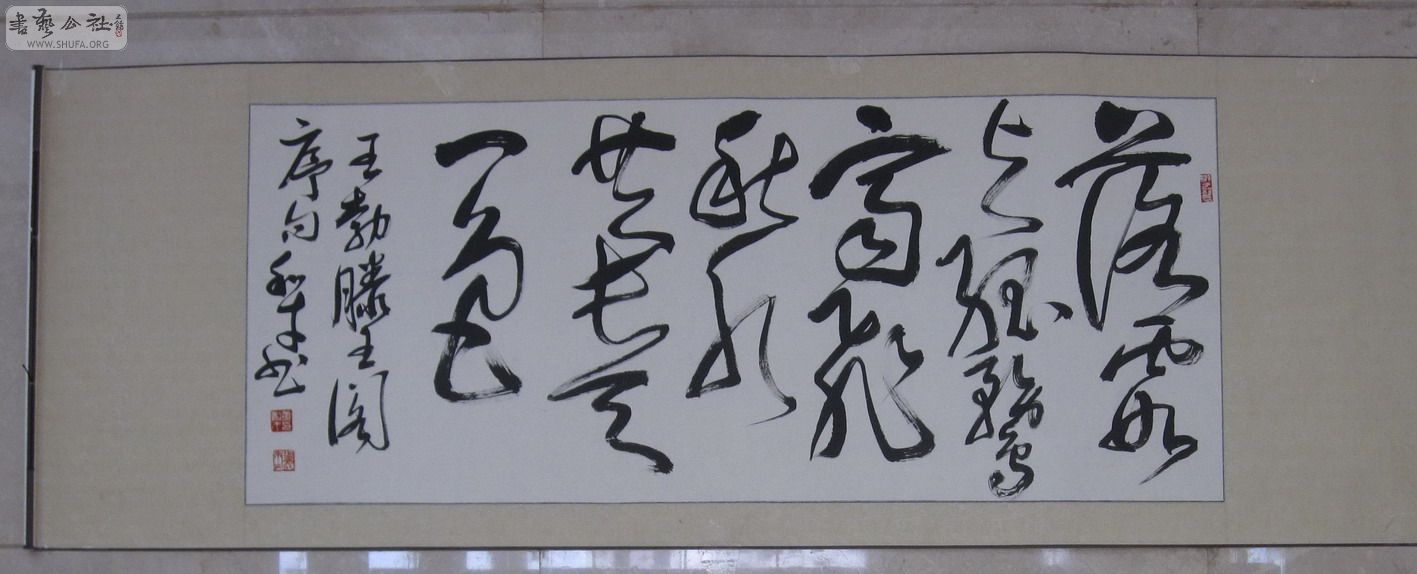 書藝公社
WWW.SHUFA.ORG
落霞
与孤鶩
齊飛
秋水
共長天
一色
王勃滕王阁
序句